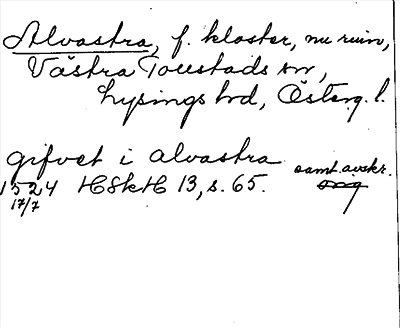 Alvastra, f. kloster, nu ruin,
Västra Tollstads sn,
Lysings hd, Österg. l.
gifvet i Alvastra
samt. avskr.
1524 HSkH 13, s. 65. orig
17/7